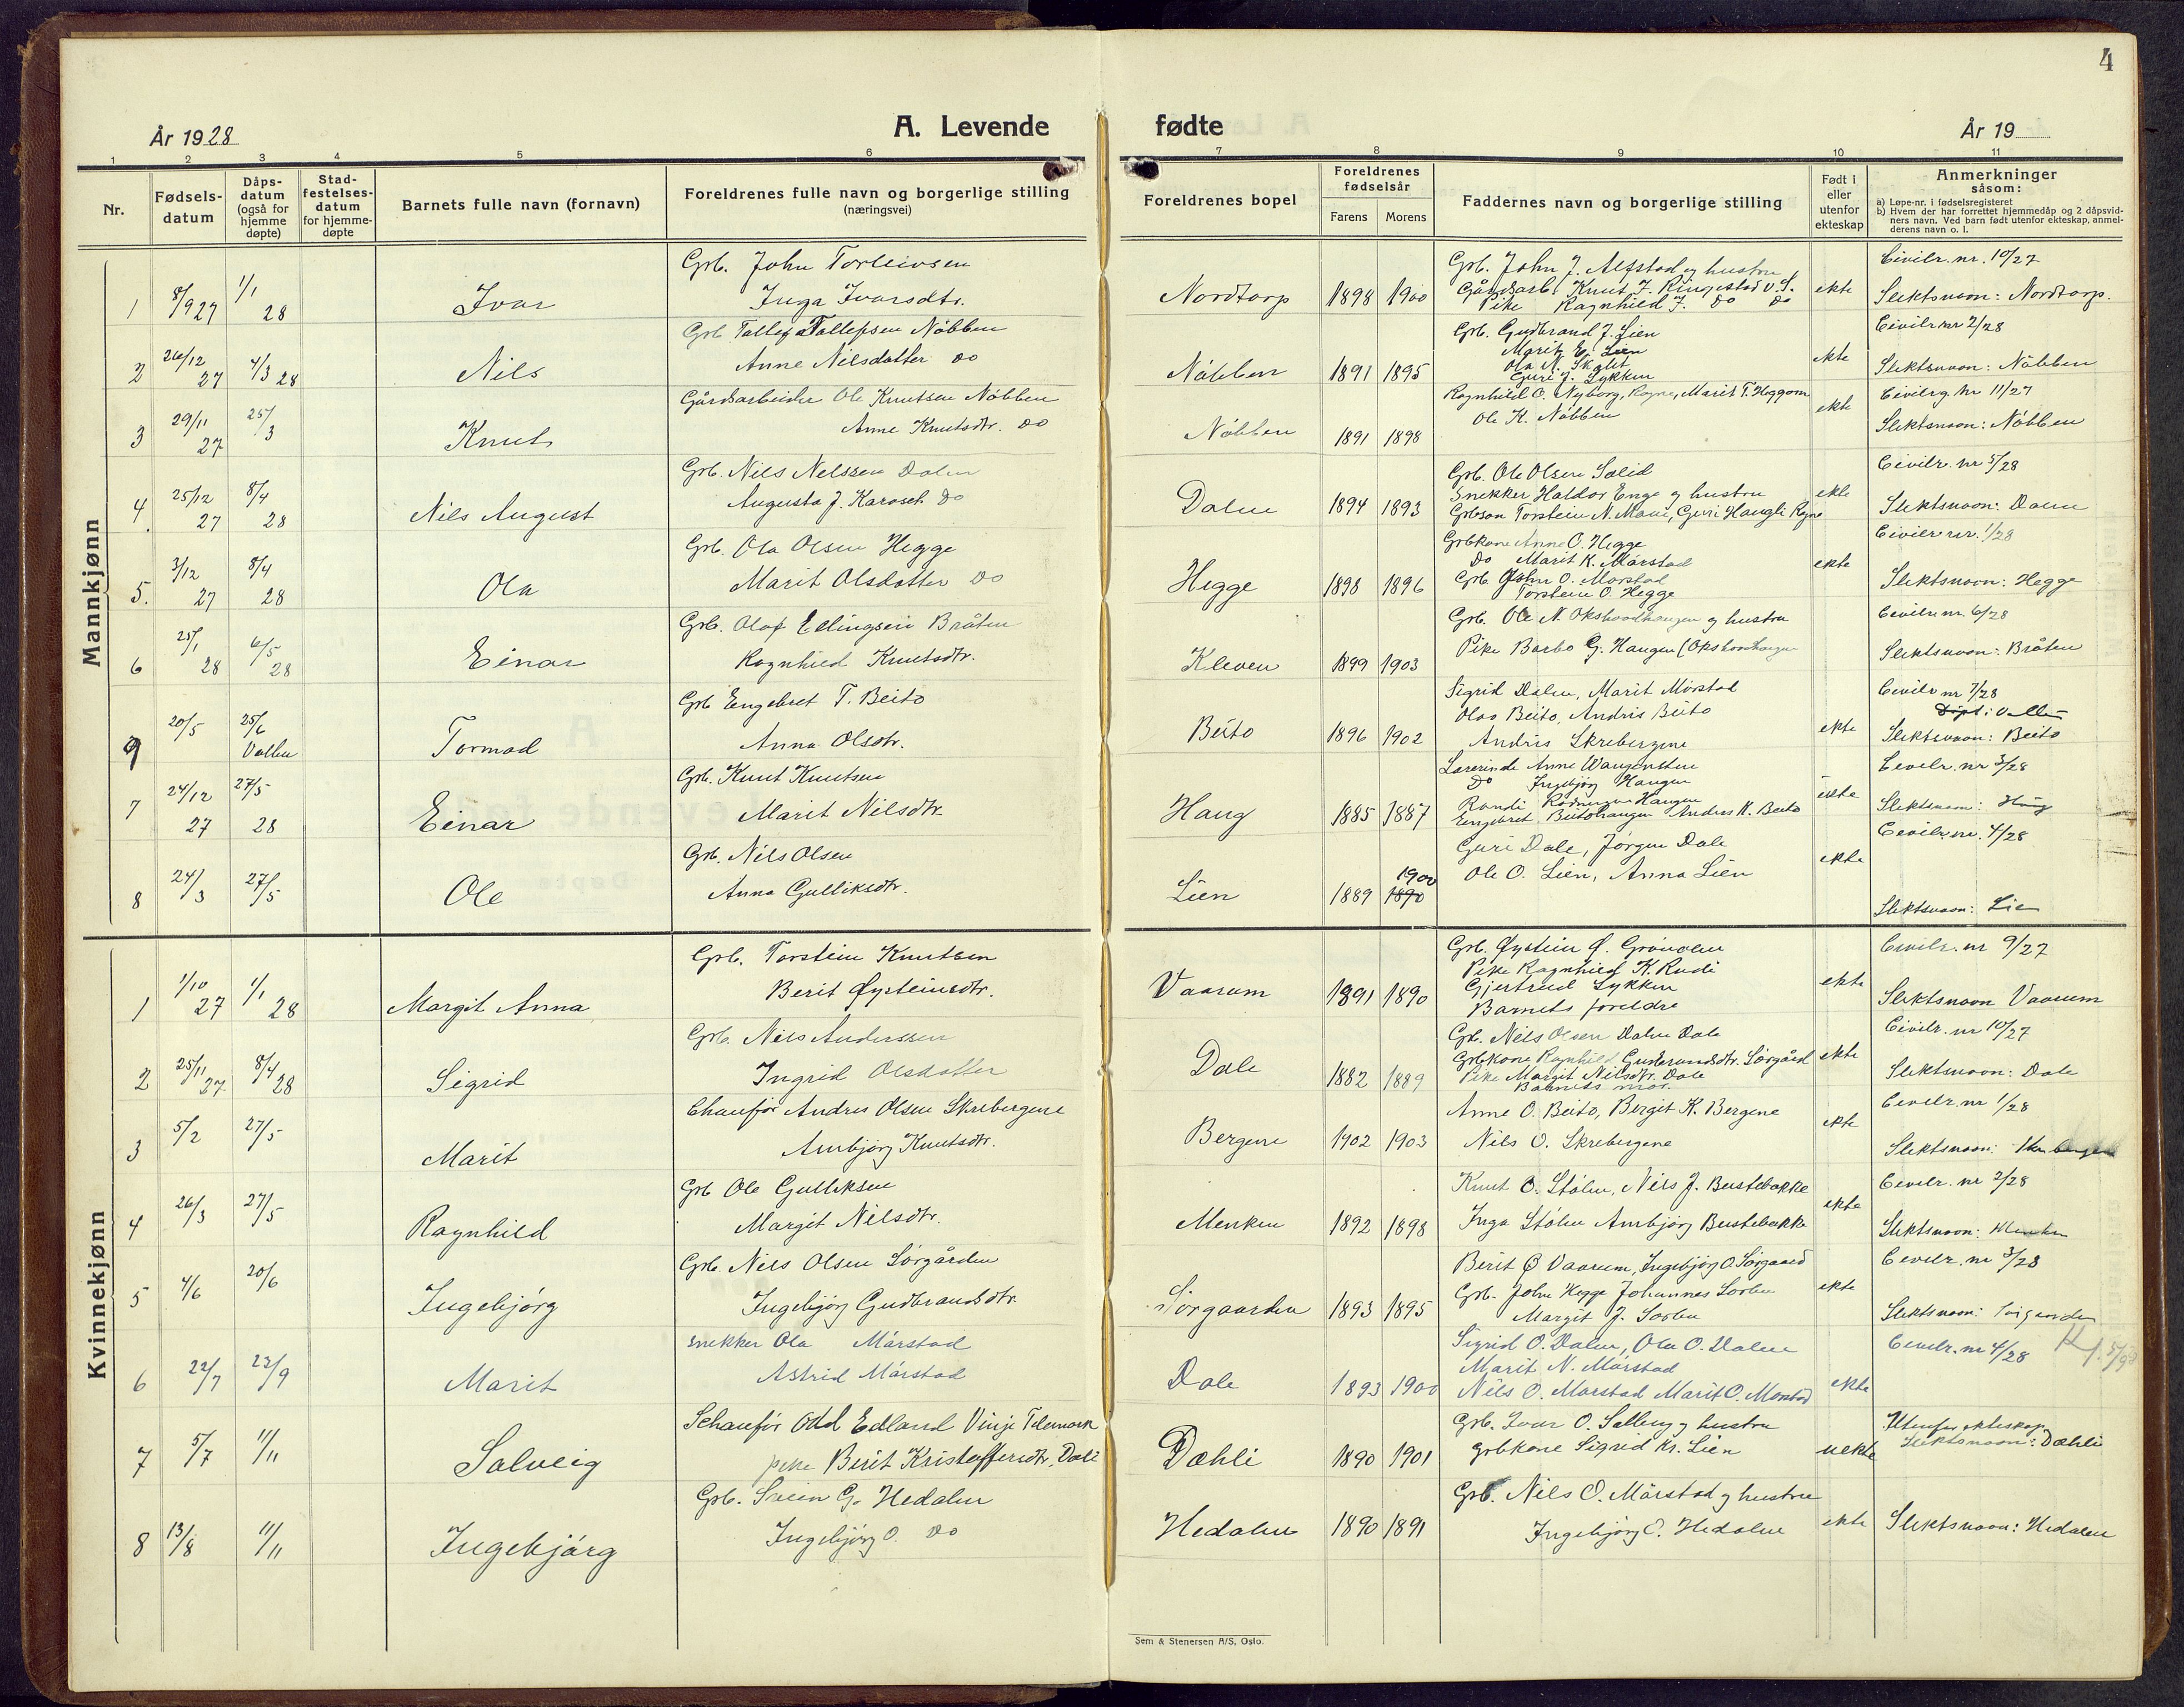 4
År 1928
A. Levende
fødte
År 19
1 2 3 4 5 6 7 8 9 10 11
Nr.
Fødsels-
datum
Dåps-
datum
(også for
hjemme
døpte)
Stad-
festelses-
datum
for hjemme-
døpte
Barnets fulle navn (fornavn)
Foreldrenes fulle navn og borgerlige stilling
(næringsvei)
Foreldrenes bopel
Foreldrenes
fødselsår
Farens
Morens
Faddernes navn og borgerlige stilling
Født i
eller
utenfor
ekteskap
Anmerkninger
såsom:
a) Løpe-nr. i fødselsregisteret
b) Hvem der har forrettet hjemmedåp og 2 dåpsvid-
ners navn. Ved barn født utenfor ekteskap, anmel-
derens navn o. l.
Mannkjønn
Grb. John Torleivsen
Grb. John J. Alfstad og hustru
Civilr. nr. 10/27
1 8/9 27 1/1 28 Ivar Inga Ivarsdtr. Nordtorp 1898 1900 Gårdsarb. Knut J. Ringestad V. S. ekte Slektsnavn: Nordtorp.
Pike Ragnhild J. do do
Grb. Tollef Tollefsen Nöbben
Grb. Gudbrand J. Lien
Civilr nr 2/28
2 26/12 27 4/3 28 Nils Anne Nilsdatter do Nöbben 1891 1895 Marit E. Lien ekte Slektsnavn: Nöbben
Ola N. Skolt
Guri J. Lykken
Gårdsarbeider Ole Knutsen Nöbben
Ragnhild O. Nyborg, Rogne, Marit T. Heggom
Civilrg Nr 11/27
3 29/11 27 25/3 Knut Anne Knutsdtr. do Nöbben 1891 1898 Ole K. Nöbben ekte Slektsnavn: Nöbben
Grb. Nils Nelssen Dalen
Grb. Ole Olsen Sælid
Civilr. nr 5/28
4. 25/12 27 8/4 28 Nils August Augusta J. Karosch do Dalen 1894 1893 Snekker Haldor Enge og hustru ekte Slektsnavn: Dalen
Grbson Torstein N. Moen, Guri Haugli Rogne
Grb. Ola Olsen Hegge
Grbkone Anna O. Hegge
Civilr nr. 1/28
5. 3/12 27 8/4 28 Ola Marit Olsdatter do Hegge 1898 1896 do Marit K. Mårstad ekte Slektsnavn: Hegge
Grb. John O. Mørstad
Torstein O. Hegge
Grb. Olaf Ellingsen Bråten
Grb. Ole N. Okshovdhaugen og hustru
Civilr nr 6/28
6 25/1 28 6/5 28 Einar Ragnhild Knutsdtr. Kleven 1899 1903 Pike Barbo G. Haugen (Okshovdhaugen Slektsnavn: Bråten
Grb Engebret T. Beito
Sigrid Dalen, Marit Mörstad
Civilr nr 7/28
Olav Beito, Andris Beito
9 20/5 25/6 Vollen Tormod Anna Olsdtr. Beito 1896 1902 Andris Skrebergene ekte Slektsnavn: Beito
Grb. Knut Knutsen
Lærerinde Anne Wangensteen
Civilr. nr 3/28
7 24/12 27 27/5 28 Einar Marit Nilsdtr. Haug 1885 1887 do Ingebjörg Haugen ekte Slektsnavn: Haug
Randi Haugen
Engebret Beitohaugen Anders K. Beito
Grb. Nils Olsen
Guri Dale, Jörgen Dale
Civilr. nr. 4/28
8 24/3 27/5 Ole Anna Gulliksdtr. Lien 1889 1900 1890 Ole O. Lien, Anna Lien ekte Slektsnavn: Lie
Kvinnekjønn
Grb. Torstein Knutsen
Grb. Øystein Ø. Grönolen
Civilr. nr 9/27
1 1/10 27 1/1 28 Margit Anna Berit Øysteinsdtr. Vaarum 1891 1890 Pike Ragnhild K. Rudi ekte Slektsnavn Vaarum
Gjertrud Lykken
Barnets foreldre
Grb. Nils Anderssen
Grb. Nils Olsen Dalen Dale
Civilr. nr 10/27
2 25/11 27 8/4 28 Sigrid Ingrid Olsdatter Dale 1882 1889 Grbkone Ragnhild Gudbrandsdtr. Sörgård ekte Slektsnavn: Dale
Pike Margit Nilsdtr. Dale
Barnets mor.
Chauför Andres Olsen Skrebergene
Anne O. Beito, Bergit K. Bergene
Civilr. nr 1/28
3 5/2 27/5 Marit Ambjörg Knutsdtr. Bergene 1902 1903 Nils O. Skrebergene ekte Slektsnavn:
Grb Ole Gulliksen
Knut O. Stölen, Nils J. Bustebakke
Civilr. nr 2/28
4 26/3 27/5 Ragnhild Margit Nilsdtr. Menken 1892 1898 Inga Stölen Ambjörg Bustebakke ekte Slektsnavn:
Grb. Nils Olsen Sörgården
Berit Ø Vaarum, Ingebjörg O. Sörgaard
Civilr. nr 3/28
5 4/6 20/6 Ingebjörg Ingebjörg Gudbrandsdtr. Sörgaarden 1893 1895 Grb. John Hegge Johannes Sorben ekte Slektsnavn: Sörgarden
Margit J. Sorben
Snekker Ola Mårstad
Sigrid O. Dalen, Ola O. Dalen
Civilr. nr 4/28
6 22/7 23/9 Marit Astrid Mårstad Dale 1893 1900 Marit N. Mårstad ekte
Nils O. Mørstad Marit O. Mørstad
Schauför Odd Edland Vinje Telemark
Grb. Ivar O. Selleng og hustru
Utenfor ekteskap
7 5/7 11/11 Solveig pike Berit Kristoffersdtr. Dæli Dæhli 1890 1901 Grbkone Sigrid Kr. Lien uekte Slektsnavn: Dæhli
Grb. Svein G. Hedalen
Grb. Nils O. Mårstad og hustru
8 13/8 11/11 Ingebjärg Ingebjörg O. do Hedalen 1890 1891 Ingebjörg O. Hedalen ekte Slektsnavn: Hedalen
Sem & Stenersen A/S, Oslo.